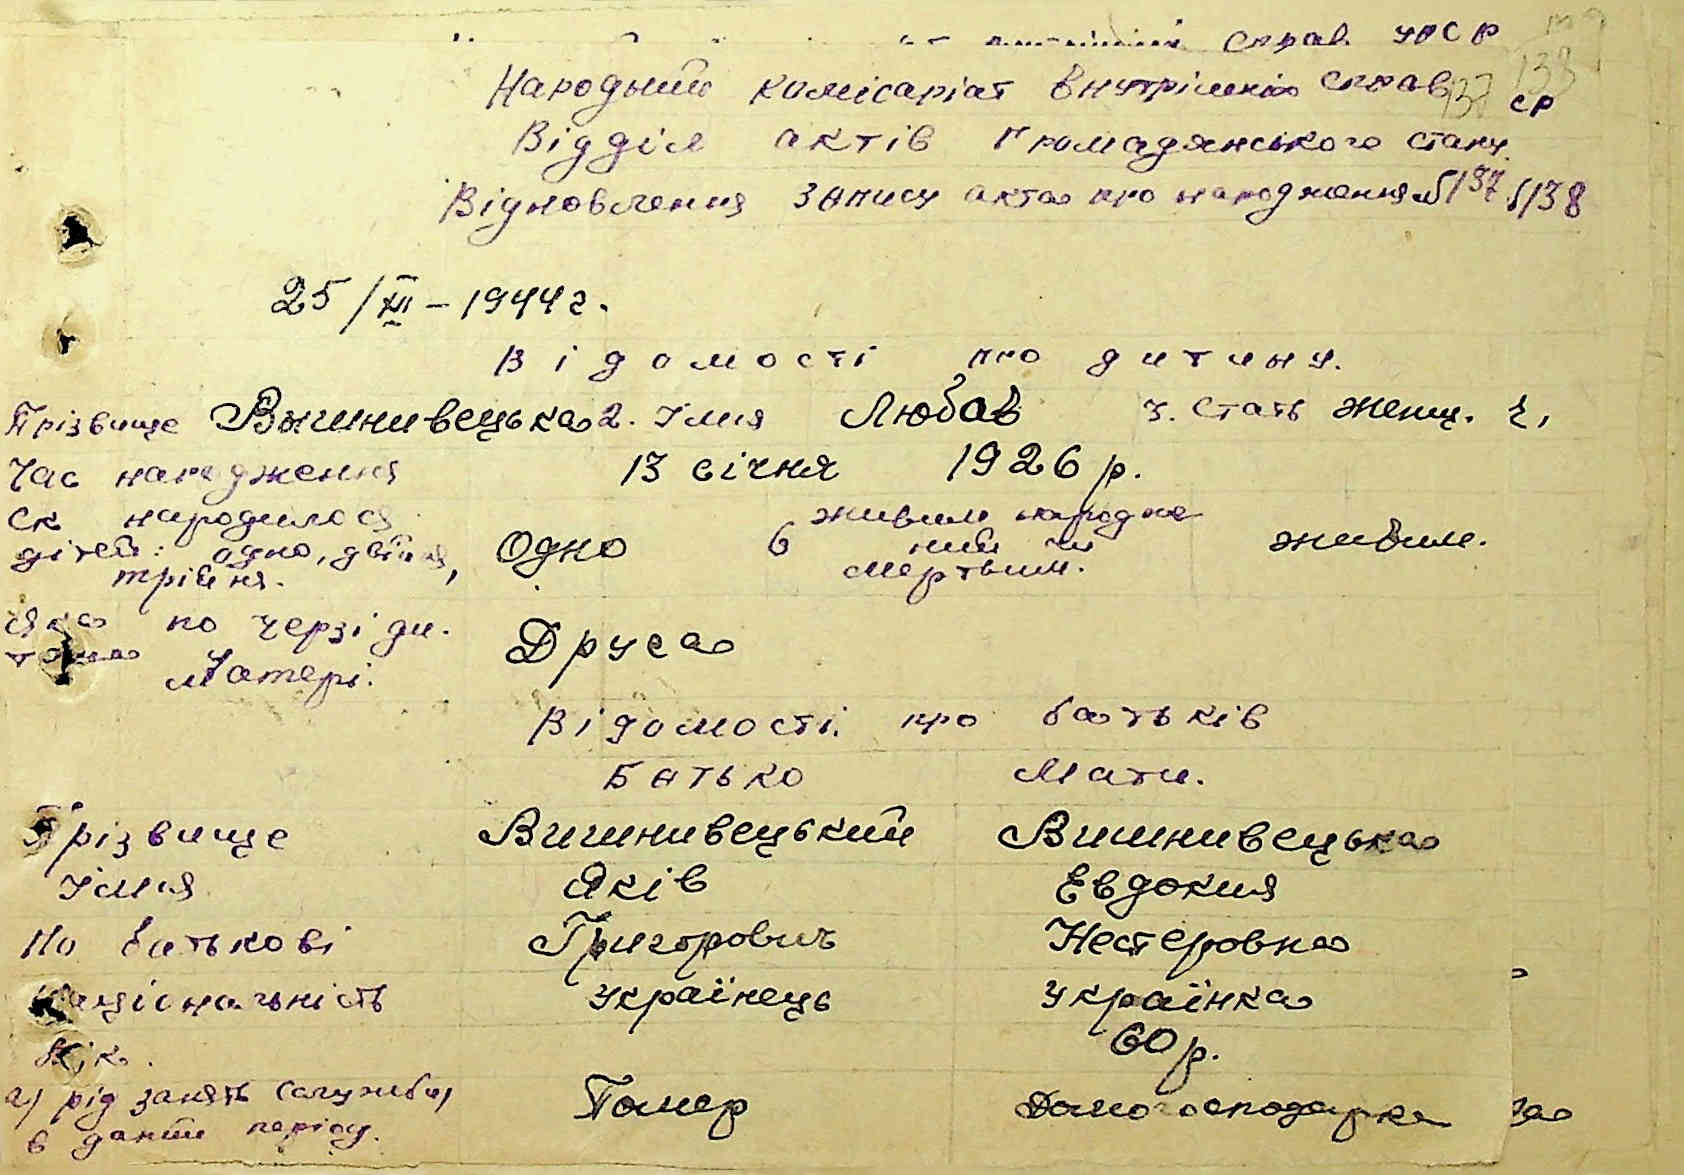 справ УРСР
Народний комісаріат внутрішніх справ 137 133 СР
Відділ актів громадянського стану.
Відновлення запису акта про народження №137 /138
25/XII - 1944 г.
Відомості про дитину.
Прізвище Вишнивецька 2. Імия Любов 3. Стать женщ. 4,
Час народження 13 січня 1926 р.
ск народилося
дітей: одно, двійня, трійня. Одно 6 живим народже ний чи мертвим. живим.
яка по черзі ди-
тина Матері. Друга
Відомості про батьків
Батько Мати.
Прізвище Вишнивецький Вишнивецька
Імия Яків Евдокия
По батькові Григорович Нестеровна
Національність Українець Українка
Вік. 60 р.
а) рід занять (служби) Помер Домогосподарка
в даний період.